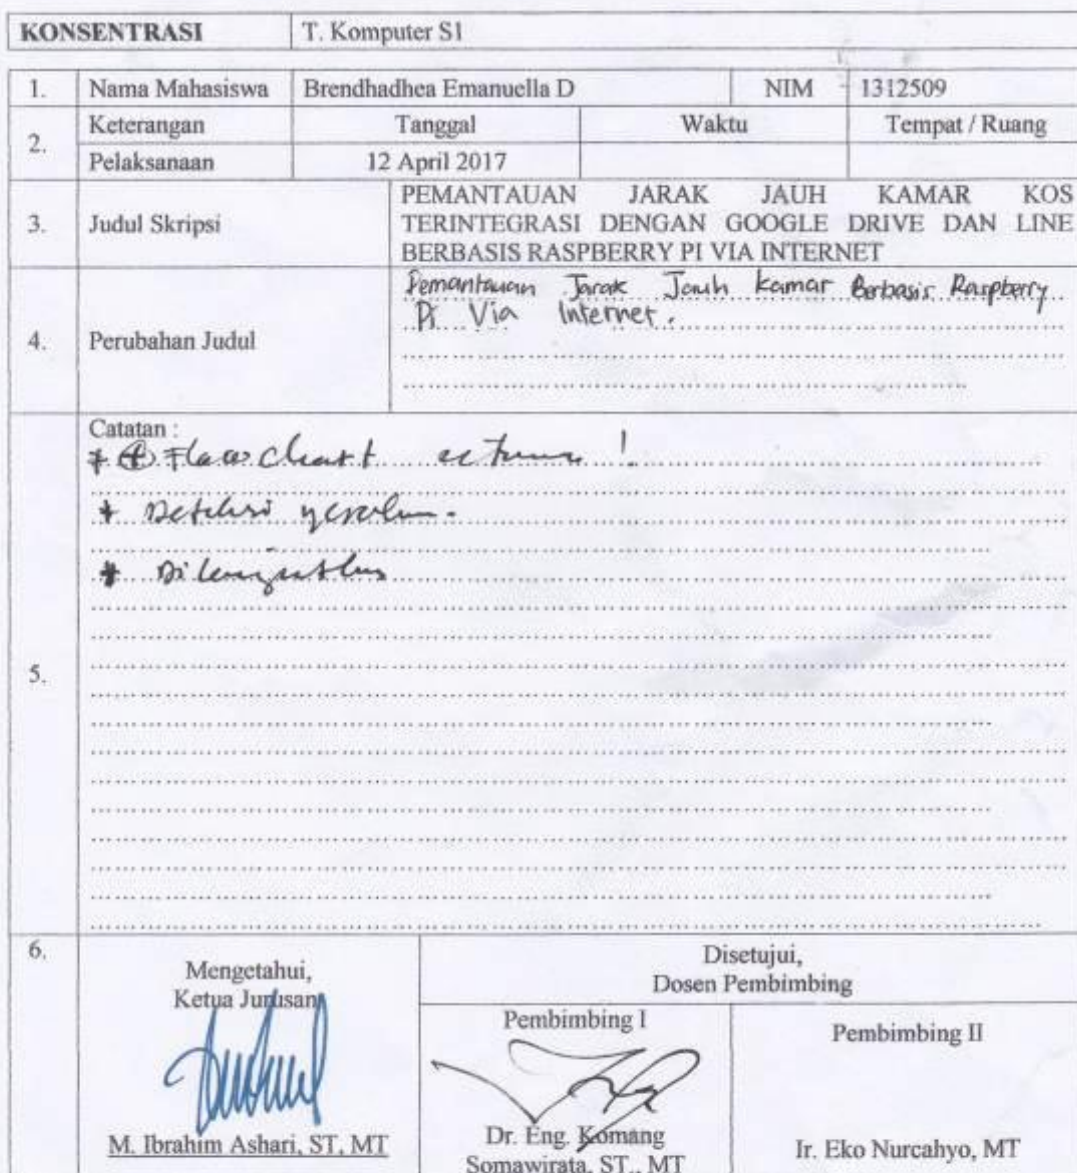 KONSENTRASI T. Komputer S1
1. Nama Mahasiswa Brendhadhea Emanuella D NIM 1312509
2. Keterangan Tanggal Waktu Tempat / Ruang
Pelaksanaan 12 April 2017
3. Judul Skripsi
PEMANTAUAN JARAK JAUH KAMAR KOS
TERINTEGRASI DENGAN GOOGLE DRIVE DAN LINE
BERBASIS RASPBERRY PI VIA INTERNET
4. Perubahan Judul
Pemantauan Jarak Jauh kamar Berbasis Raspberry
Pi Via Internet.
5.
Catatan :
* + Flowchart !
* Deteksi
*
6.
Mengetahui,
Ketua Jurusan
M. Ibrahim Ashari, ST, MT
Disetujui,
Dosen Pembimbing
Pembimbing I
Dr. Eng. Komang
Somawirata, ST., MT
Pembimbing II
Ir. Eko Nurcahyo, MT